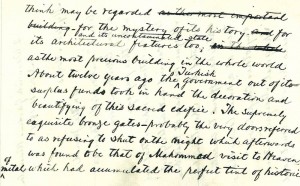 think may be regarded as the most important
building - for the mystery of its history and for
and its uncontaminated state
its architectural features too,
as the most precious building in the whole world
Turkish
About twelve years ago the Government out of its
surplus funds took in hand the decoration and
beautifying of this sacred edifice. The supremely
exquisite bronze gates - probably the very doors referred
to as refusing to shut on the night which afterwards
was found to be that of Mahommad visit to Heaven
of
metal which had accumulated the perfect tint of historic